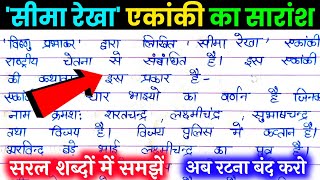 'सीमा रेखा' एकांकी का सारांश
'विष्णु प्रभाकर' द्वारा लिखित 'सीमा रेखा' एकांकी
राष्ट्रीय चेतना से संबंधित है। इस एकांकी
की इस प्रकार है-
चार भाइयो का वर्णन है जिनके
नाम क्रमशः शरतचन्द्र, लक्ष्मीचंद्र, सुभाषचंद्र
तथा विजय है। विजय पुलिस में कप्तान है।
अरविन्द बडे भाई लक्ष्मीचंद्र का पुत्र है।
सरल शब्दों में समझें
अब रटना बंद करो